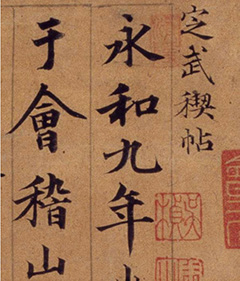 定武禊帖
永和九年
于會稽山